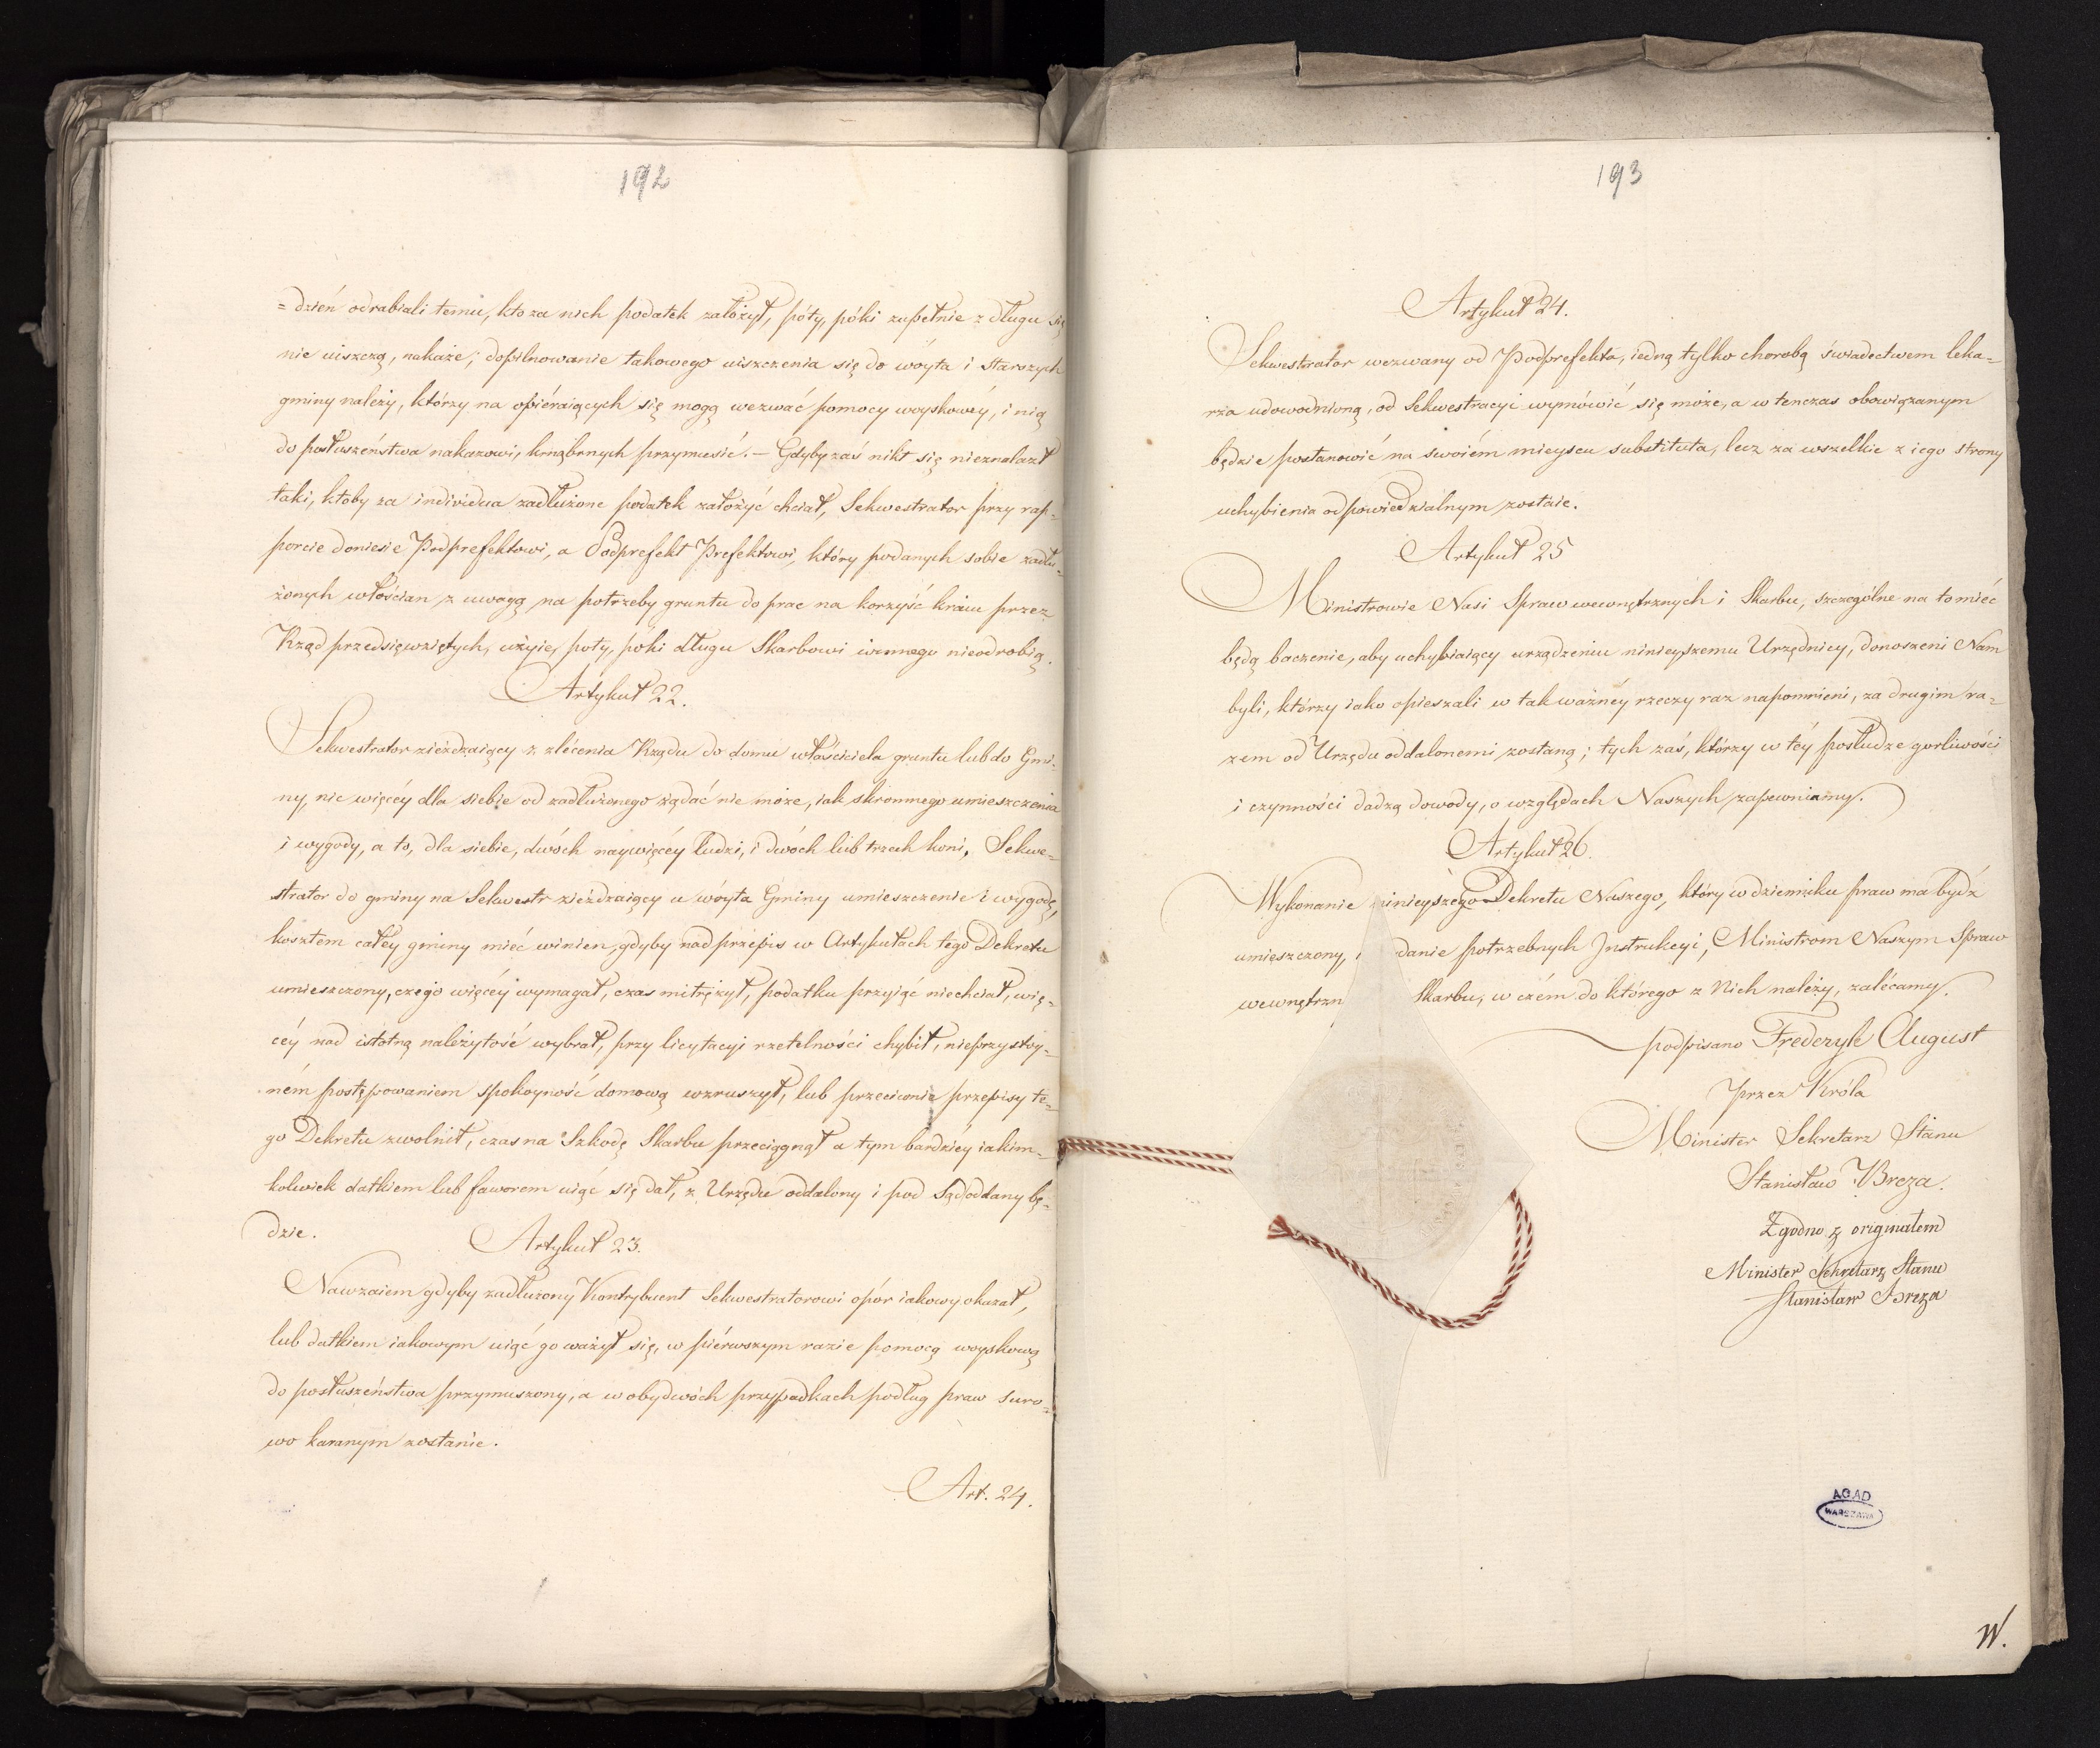 192
=dzień odrabiali temu, kto za nich podatek założył, póty, póki zupełnie z długu się
nie uiszczą, nakaże; dopilnowanie takowego uiszczenia się do wóyta i starszych
gminy należy, którzy na opiéraiących się mogą wezwać pomocy woyskowéy, i nią
do posłuszeństwa nakazowi, krnąbrnych przymusić. — Gdyby zaś nikt się nieznalazł
taki, któby za individua zadłużone podatek założyć chciał, Sekwestrator przy rap-
porcie doniesie Podprefektowi, a Podprefekt Prefektowi, który podanych sobie zadłu-
żonych włościan z uwagą na potrzeby gruntu do prac na korzyść kraiu przez
Rząd przedsięwziętych, użyie, poty, póki długu Skarbowi winnego nieodrobią.
Artykuł 22.
Sekwestrator zieżdzaiący z zlécenia Rządu do domu właściciela gruntu lub do Gmi-
ny, nic więcéy dla siebie od zadłużonego żądać nie może, iak skromnego umieszczenia
i wygody, a to, dla siebie, dwóch naywięcéy ludzi, i dwóch lub trzech koni. Sekwe-
strator do gminy na Sekwestr zieżdzaiący u wóyta Gminy umieszczenie i wygodę,
kosztem całéy gminy mieć winien, gdyby nad przepis w Artykułach tego Dekretu
umieszczony, czego więcéy wymagał, czas mitrężył, podatku przyiąć niechciał, wię-
céy nad istotną należytość wybrał, przy licytacyi rzetelności chybił, nieprzystoy-
ném postępowaniem spokoyność domową wzruszył, lub przeciwnie przepisy te-
go Dekretu zwolnił, czas na Szkodę Skarbu przeciągnął a tym bardziéy iakim-
kolwiek datkiem lub faworem uiąć się dał, z Urzędu oddalony i pod Sąd oddany bę-
dzie.
Artykuł 23.
Nawzaiem gdyby zadłużony Kontrybuent Sekwestratorowi opór iakowy okazał,
lub datkiem iakowym uiąć go ważył się, w piérwszym razie pomocą woyskową
do posłuszeństwa przymuszony, a w obydwóch przypadkach podług praw suro-
wo karanym zostanie.
Art. 24.
193
Artykuł 24.
Sekwestrator wezwany od Podprefekta, iedną tylko chorobą świadectwem leka-
rza udowodnioną, od Sekwestracyi wymówić się może, a w tenczas obowiązanym
będzie postanowić na swoiém mieyscu substituta, lecz za wszelkie z iego strony
uchybienia odpowiedzialnym zostaie.
Artykuł 25
Ministrowie Nasi Spraw wewnętrznych i Skarbu, szczególne na to mieć
będą baczenie, aby uchybiaiący urządzeniu ninieyszemu Urzędnicy, donoszeni Nam
byli, którzy iako opieszali w tak ważnéy rzeczy raz napomnieni, za drugim ra-
zem od Urzędu oddalonemi zostaną; tych zaś, którzy w téy posłudze gorliwości
i czynności dadzą dowody, o względach Naszych zapewniamy.
Artykuł 26.
Wykonanie ninieyszego Dekretu Naszego, który w dzienniku praw ma bydź
umieszczony, danie potrzebnych Instrukcyi, Ministrom Naszym Spraw
wewnętrzn Skarbu, w czém do którego z Nich należy, zalécamy.
podpisano Fryderyk August
Przez Króla
Minister Sekretarz Stanu
Stanisław Breza.
Zgodno z originałem
Minister Sekretarz Stanu
Stanisław Breza
AGAD
WARSZAWA
W.